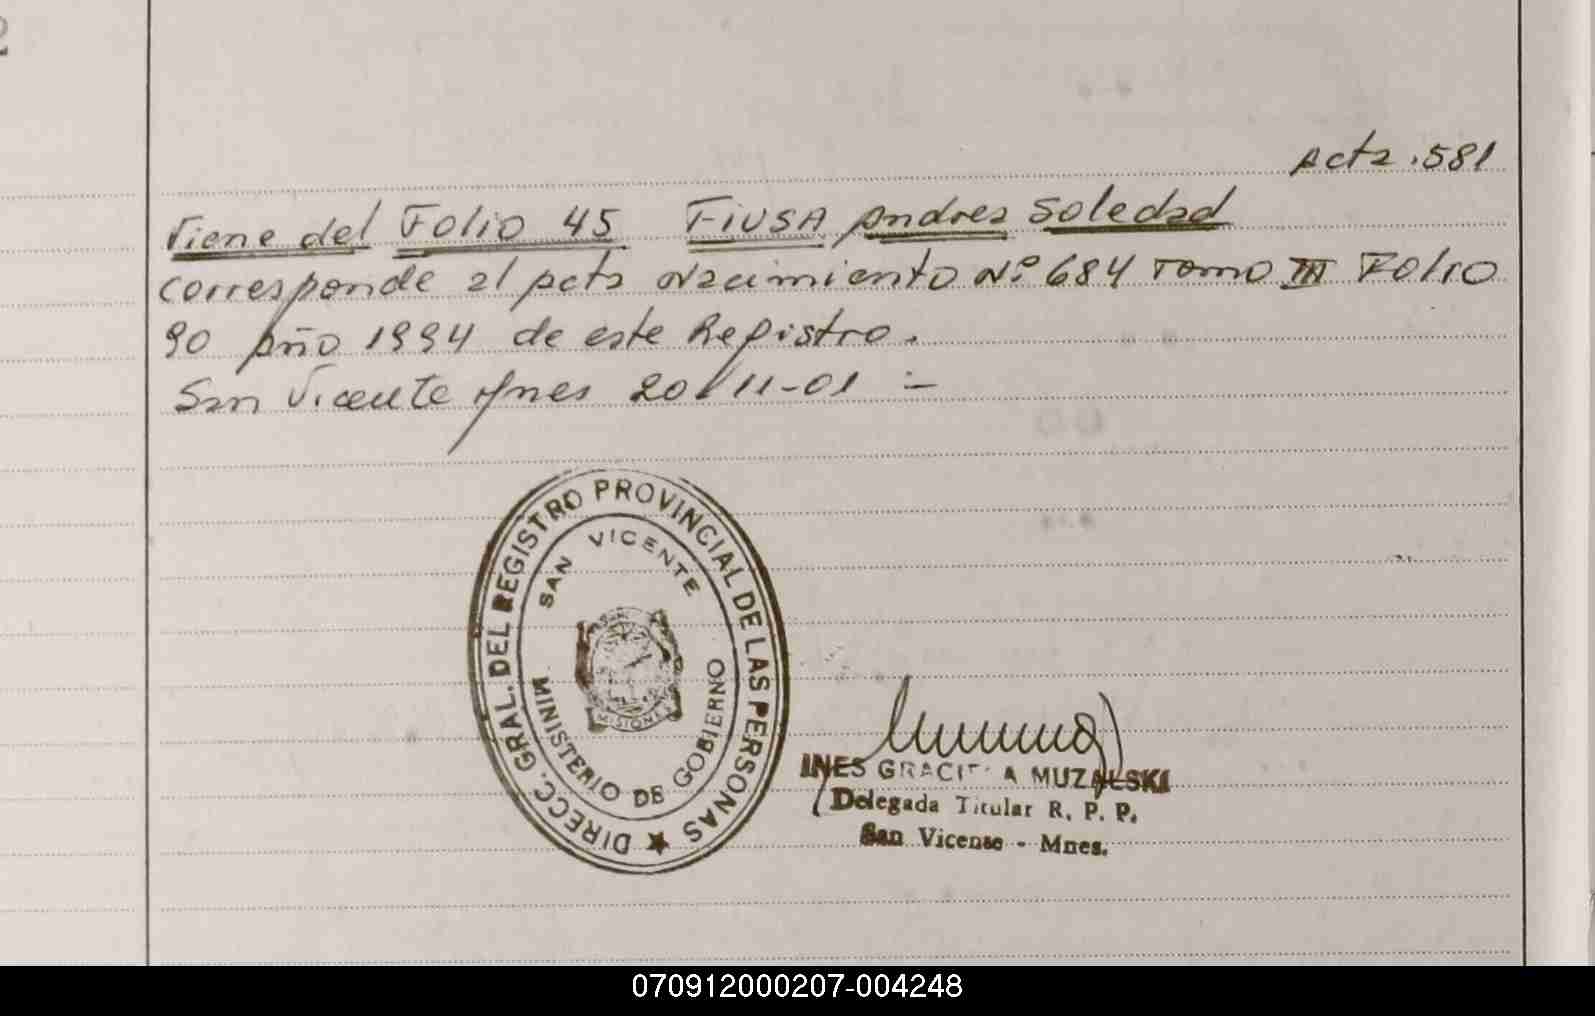 2
Acta. 581
Viene del Folio 45 FIUSA Andrea Soledad
corresponde al Acta Nacimiento Nº 684 Tomo III Folio
90 Año 1994 de este Registro.
San Vicente Mnes 20/11-01 :-
DIRECC. GRAL. DEL REGISTRO PROVINCIAL DE LAS PERSONAS
SAN VICENTE
MISIONES
MINISTERIO DE GOBIERNO
INES GRACIELA MUZALSKI
Delegada Titular R. P. P.
San Vicente - Mnes.
070912000207-004248